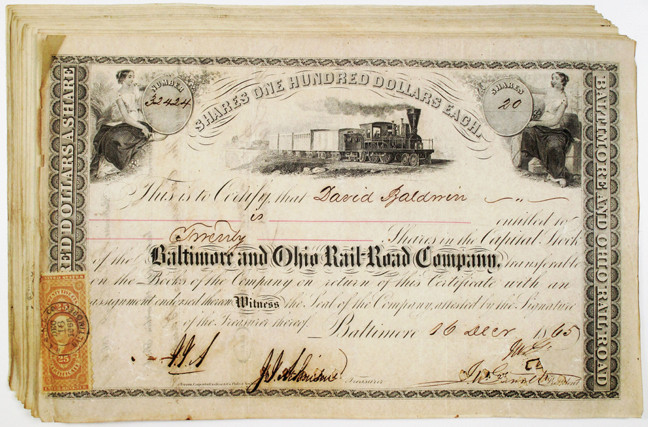 NUMBER
32424
SHARES ONE HUNDRED DOLLARS EACH.
SHARES
20
ED DOLLARS A SHARE
BALTIMORE AND OHIO RAILROAD
This is to Certify, that David Baldwin
is entitled to
Twenty Shares in the Capital Stock
of the Baltimore and Ohio Rail-Road Company, transferable
on the Books of the Company on return of this Certificate with an
assignment endorsed thereon Witness the Seal of the Company, attested by the Signature
of the Treasurer thereof. Baltimore 16 Decr 1865
25
Treasurer
President